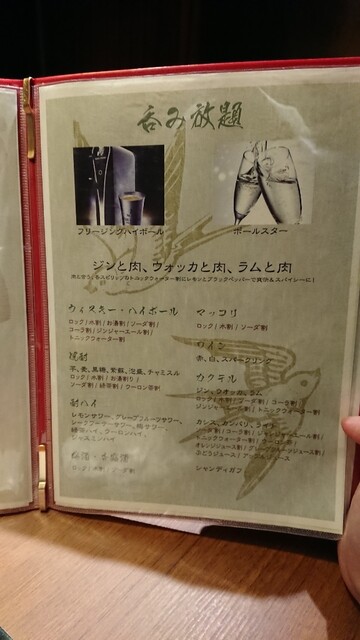 呑み放題
フリージングハイボール
ポールスター
ジンと肉、ウォッカと肉、ラムと肉
ウィスキー・ハイボール
ロック / 水割 / お湯割 / ソーダ割
コーラ割 / ジンジャーエール割 /
トニックウォーター割
焼酎
芋、麦、黒糖、紫蘇、泡盛、チャミスル
ロック / 水割 / お湯割り /
ソーダ割 / 緑茶割 / ウーロン茶割
酎ハイ
レモンサワー、グレープフルーツサワー、
シークワーサーサワー、梅サワー、
緑茶ハイ、ウーロンハイ、
ジャスミンハイ
梅酒・杏露酒
ロック / 水割 / ソーダ割
マッコリ
ロック / 水割 / ソーダ割
ワイン
赤、白、スパークリング
カクテル
ジン、ウォッカ、ラム
ロック / 水割 / ソーダ割 / コーラ割 /
ジンジャーエール割 / トニックウォーター割
カシス、カンパリ、ライチ
ソーダ割 / コーラ割 / ジンジャーエール割 /
トニックウォーター割 / ウーロン割 /
オレンジジュース割 / グレープフルーツジュース割
シャンディガフ